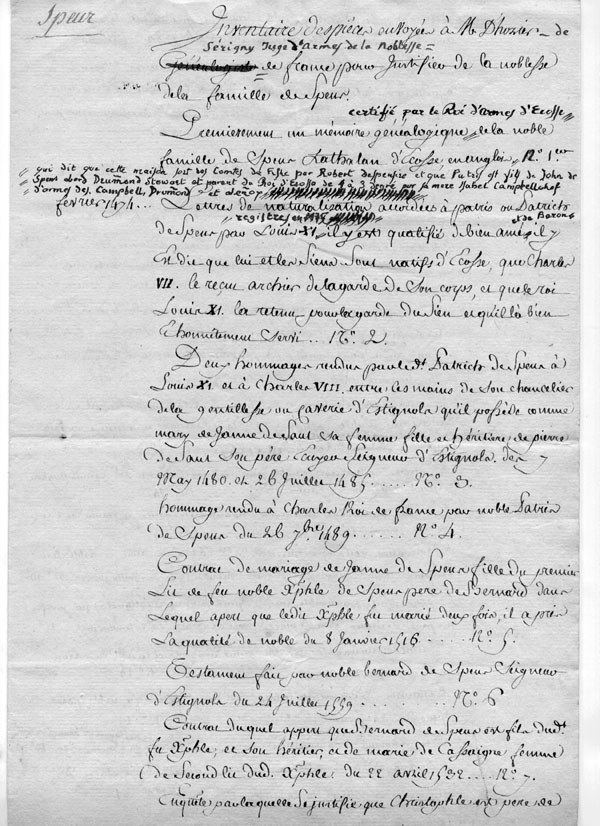 Speur
Inventaire des pièces envoyées à Mr D'hozier de
Sérigny Juge d'Armes de la Noblesse
Généalogiste de france pour Justifier de la noblesse
de la famille de Speur.
certifié par le Roi d'armes d'Ecosse
Premierement un mémoire généalogique de la noble
famille de Speur d'Ecosse en anglois No. 1.er
qui dit que cette maison sort des Comtes de Fife par Robert et que est fils de John de
Drummond Stewart et parent du Roi d'Ecosse de 4 à 3 degré par sa mere Isabel Campbell
d'armes des Campbell, Drumond et
fevrier 1474... Lettres de naturalisation accordées à patris ou Patrick
registrées en et de Baron
de Speur par Louis XI, il y est qualifié de bien amé, il y
Est dit que lui et les Siens Sont natifs d'Ecosse, que Charles
VII. le reçut archier de la garde de Son corps, et que le roi
Louis XI. la retenu pour la garde du Sien et qu'il la bien
Et honnêtement Servi .. No. 2.
Deux hommages rendus par le dt. Patrick de Speur à
Louis XI. et à Charles VIII. entre les mains de Son chancelier
de la gentillesse ou caverie d'Estignols qu'il possède comme
mary de Jeanne de Saut Sa femme fille et héritière de pierre
de Saut Son pére Ecuyer Seigneur d'Estignols des 7
May 1480. et 26 Juillet 1485 ...... No. 3.
hommage rendu à Charles Roi de france par noble Patris
de Speur du 26 7bre 1489. ...... No. 4.
Contrat de mariage de Jeanne de Speur fille du premier
Lit de feu noble Xphle de Speur pere de Bernard dans
Lequel apert que ledit Xphle fut marié deux fois, il a pris
La qualité de noble du 8 Janvier 1516 ...... No. 5.
Testament fait par noble bernard de Speur Seigneur
d'Estignols du 24 Juillet 1559 ......... No. 6
Contrat duquel appert que Bernard de Speur est fils dudt.
fu Xphle; et Son héritier, et de marie de Cassaigne femme
de Second lit dud. Xphle: du 22 avril 1532 ... No. 7.
Enquête par laquelle se justifie que Christophle est pere de